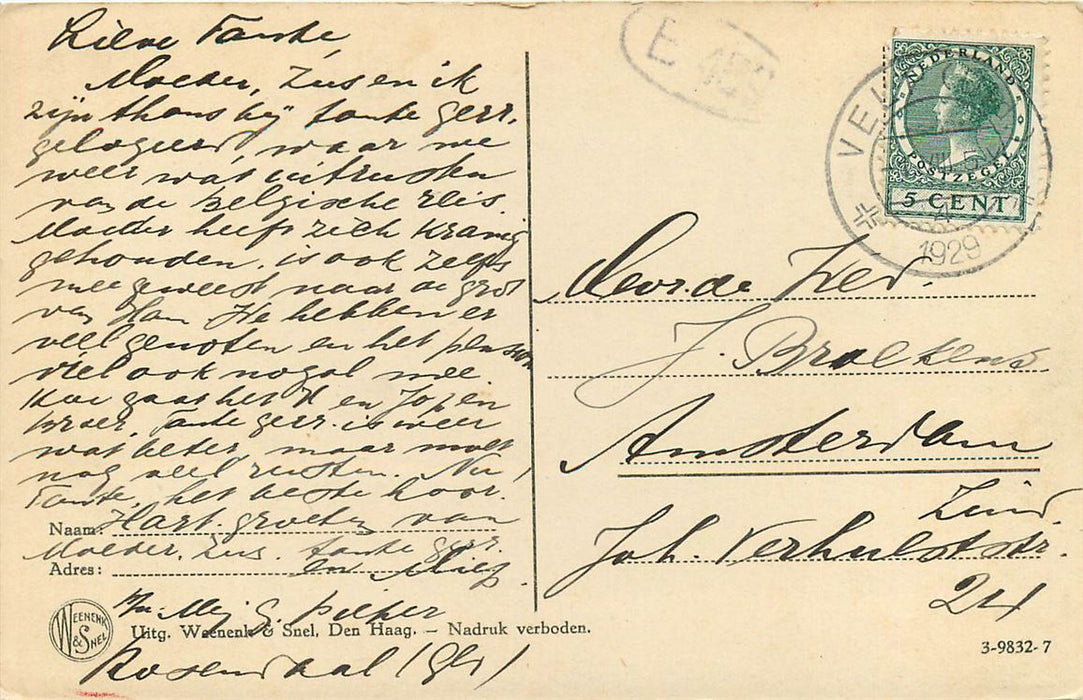 Lieve Tante,
Moeder, Zus en ik
zijn thans bij tante Gerr.
gelogeerd, waar we
weer wat uitrusten
van de Belgische reis.
Moeder heeft zich kranig
gehouden, is ook zelfs
meegeweest naar de grot
van Han. We hebben er
veel genoten en het pension
viel ook nogal mee.
Hoe gaat het U en Jo en
broer. Tante Gerr. is weer
wat beter, maar moet
nog veel rusten. Nu,
Tante, het beste hoor.
Naam: Hart. groeten van
Moeder, Zus, tante Gerr.
Adres: en Miep.
Mej. G. Pieper
Uitg. Weenenk & Snel, Den Haag. – Nadruk verboden.
Rosendaal (Gld)
WEENENK & SNEL
E
NEDERLAND
POSTZEGEL
5 CENT
VEL
1929
Mevr. de Wed.
J. Broekens
Amsterdam
Zuid.
Joh. Verhulststr.
24
3-9832-7